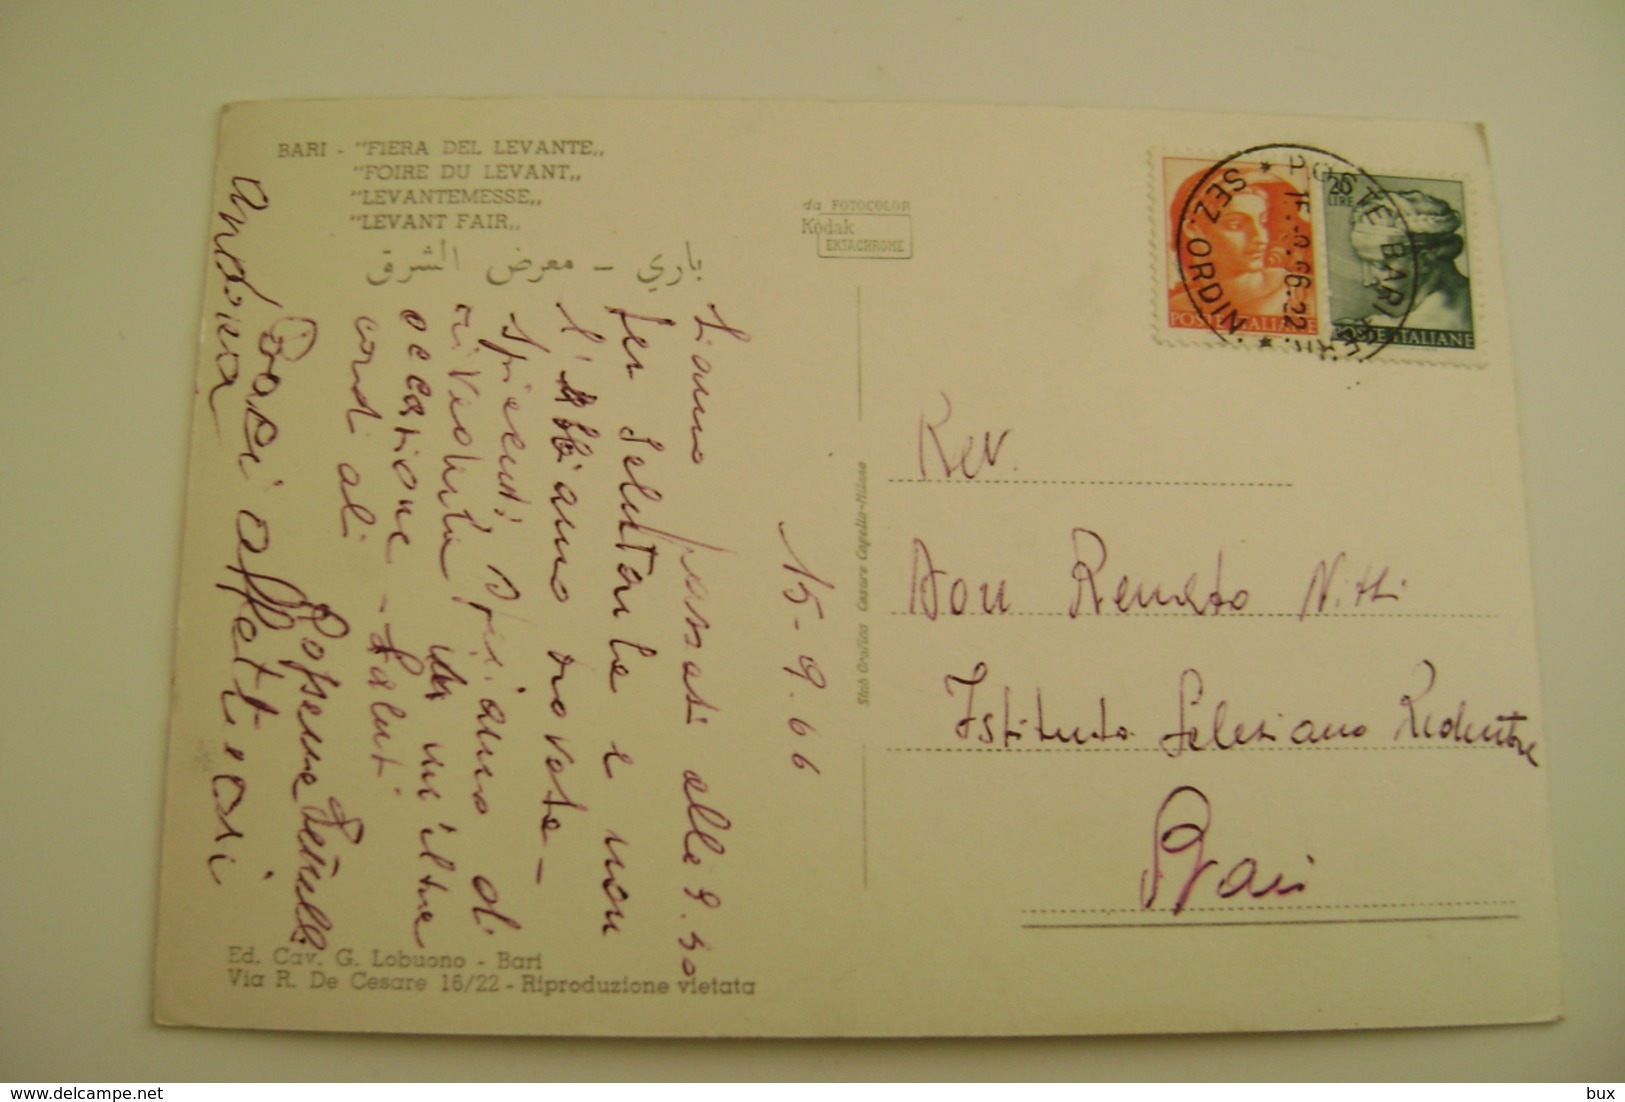 BARI - "FIERA DEL LEVANTE„
"FOIRE DU LEVANT„
"LEVANTEMESSE„
"LEVANT FAIR„
باري - معرض الشرق
da FOTOCOLOR
Kodak
EKTACHROME
20
LIRE
POSTE ITALIANE
POSTE ITALIANE
POSTE BARI FERR.
SEZ. ORDIN.
15-9.66
Siamo passati alle 9.30
per salutarla e non
l'abbiamo trovata -
Spiacenti, speriamo di
rivederla in un'altra
occasione - Saluti
cordiali
Baci affettuosi
Rev.
Don Renato Nitti
Istituto Salesiano Redentore
Bari
Stab Grafico Cesare Capello-Milano
Ed. Cav. G. Lobuono - Bari
Via R. De Cesare 16/22 - Riproduzione vietata
bux